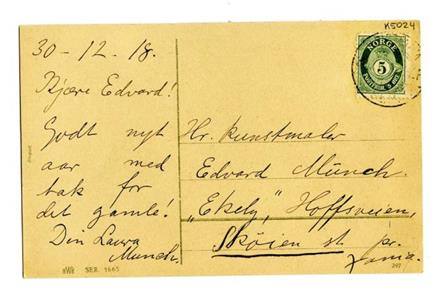 K5024
30-12-18.
Kjære Edvard!
Godt nyt
aar med
tak for
det gamle!
Din Laura
Munch.
NORGE
5
Hr. kunstmaler
Edvard Münch.
"Ekely," Hoffsveien,
Skøien st. pr.
SER. 1665